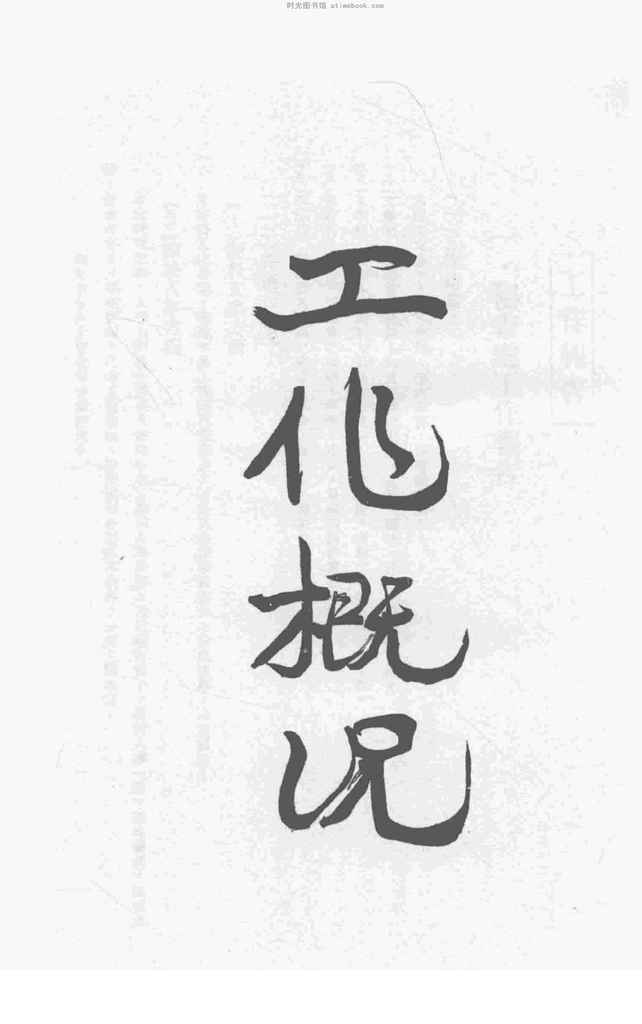 时光图书馆 atimebook.com
工作概况